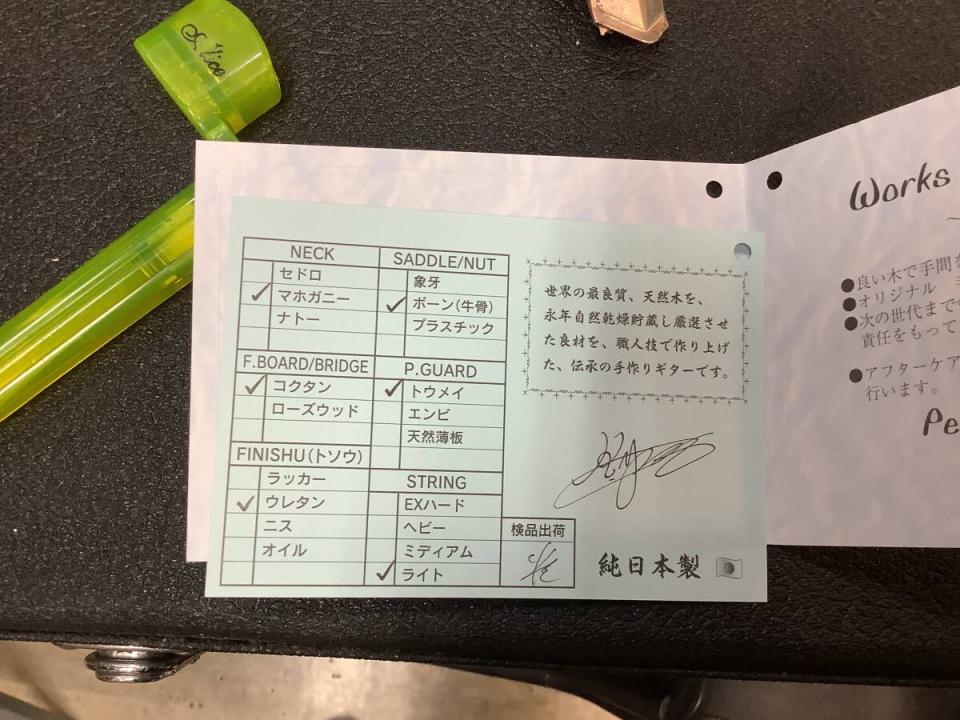 Alice
NECK
セドロ
✓ マホガニー
ナトー
F.BOARD/BRIDGE
✓ コクタン
ローズウッド
FINISHU(トソウ)
ラッカー
✓ ウレタン
ニス
オイル
SADDLE/NUT
象牙
✓ ボーン(牛骨)
プラスチック
P.GUARD
✓ トウメイ
エンビ
天然薄板
STRING
EXハード
ヘビー
ミディアム
✓ ライト
世界の最良質、天然木を、
永年自然乾燥貯蔵し厳選させ
た良材を、職人技で作り上げ
た、伝承の手作りギターです。
検品出荷
純日本製
Works
●良い木で手間を
●オリジナル
●次の世代まで
責任をもって
●アフターケア
行います。
Pe